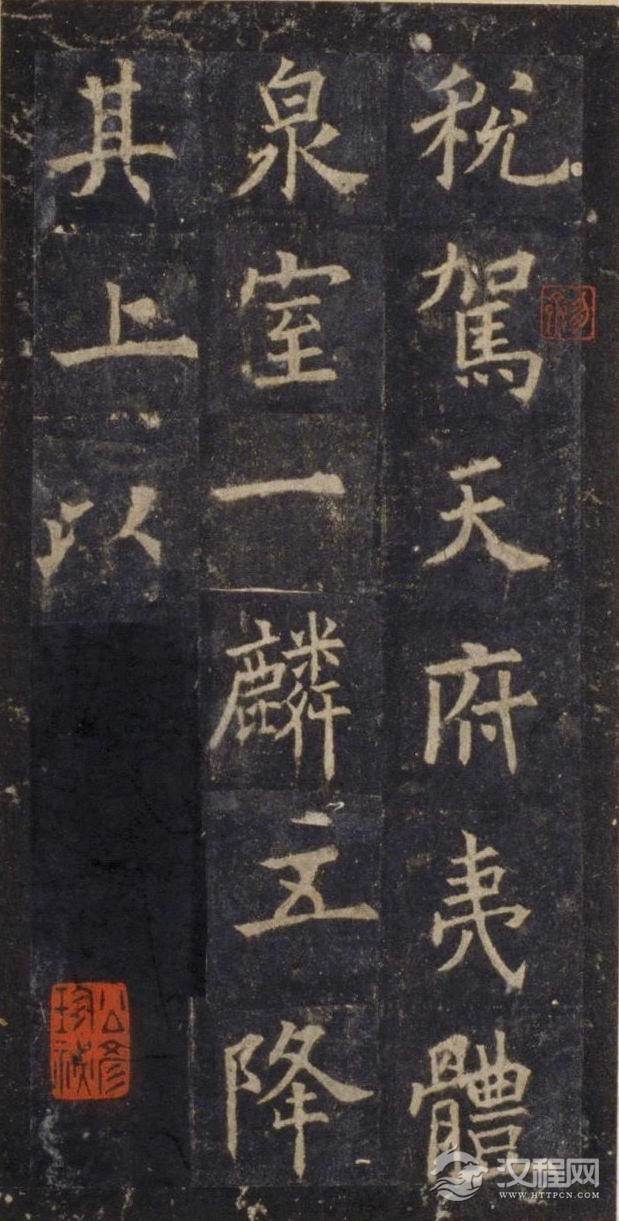 稅駕天府夷體
泉室一麟五降
其上以
汉程网
WWW.HTTPCN.COM